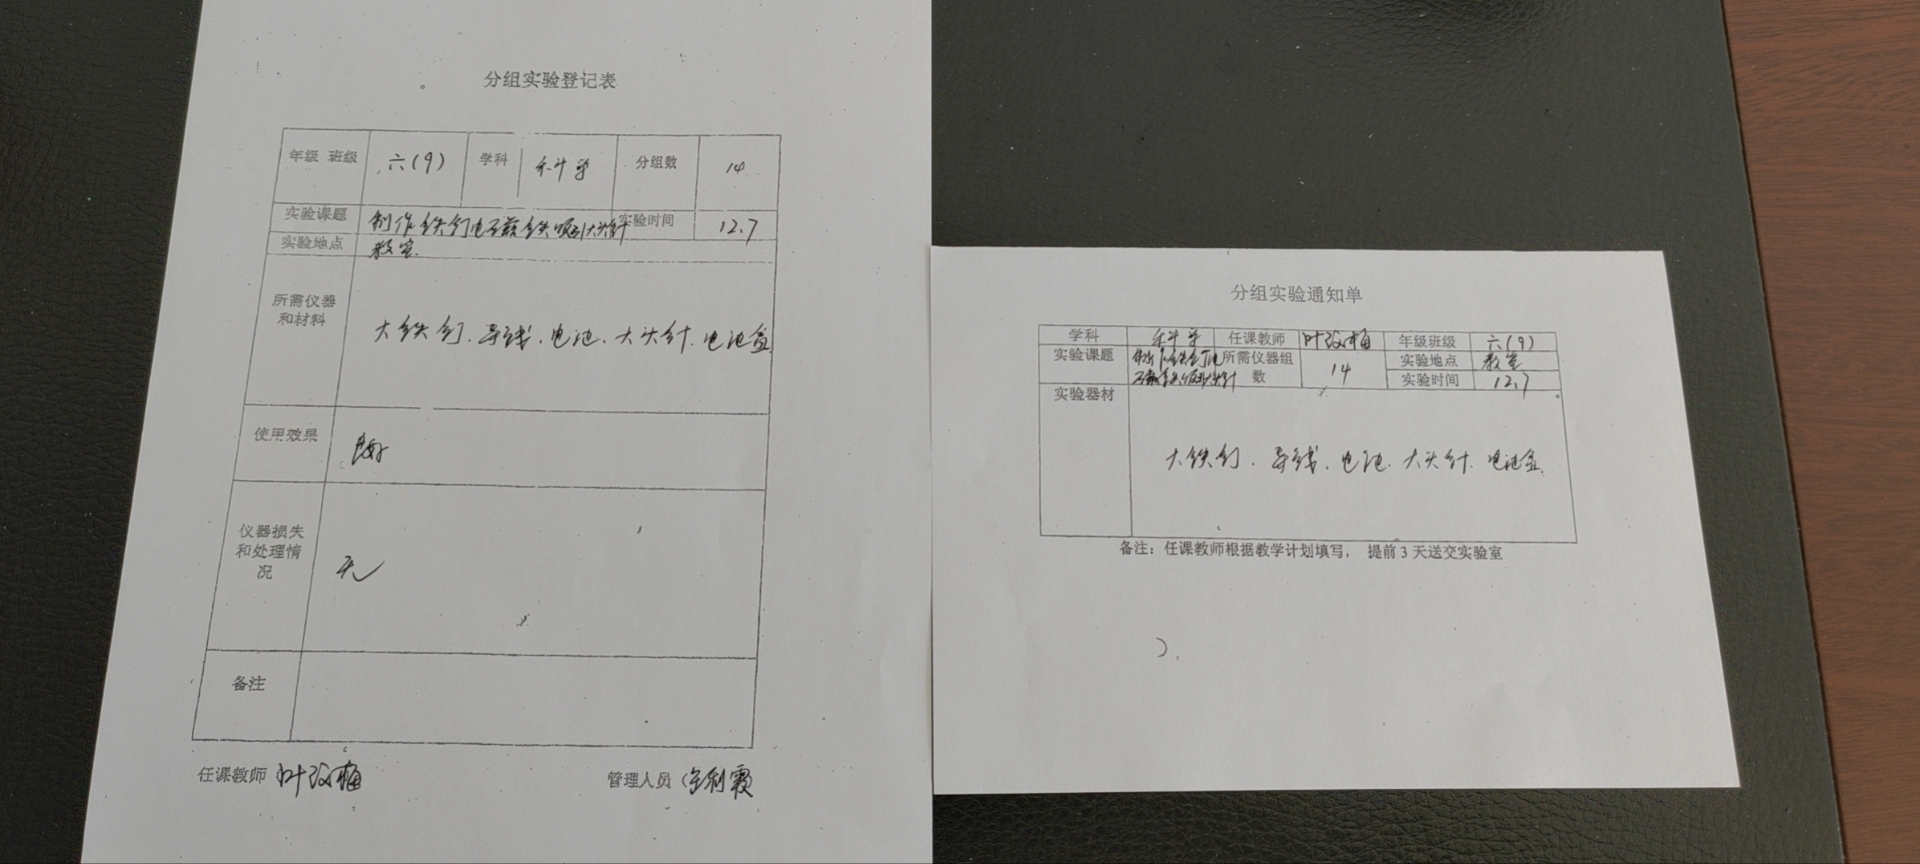 分组实验登记表
年级 班级 六(9) 学科 科学 分组数 14
实验课题 制作铁钉电磁铁吸引大头针 实验时间 12.7
实验地点 教室
所需仪器
和材料
大铁钉、导线、电池、大头针、电池盒
使用效果 良好
仪器损失
和处理情
况
无
备注
任课教师 叶政梅 管理人员
分组实验通知单
学科 科学 任课教师 叶政梅 年级班级 六(9)
实验课题 所需仪器组
数 14 实验地点 教室
实验时间 12.7
实验器材
大铁钉、导线、电池、大头针、电池盒
备注：任课教师根据教学计划填写， 提前3天送交实验室